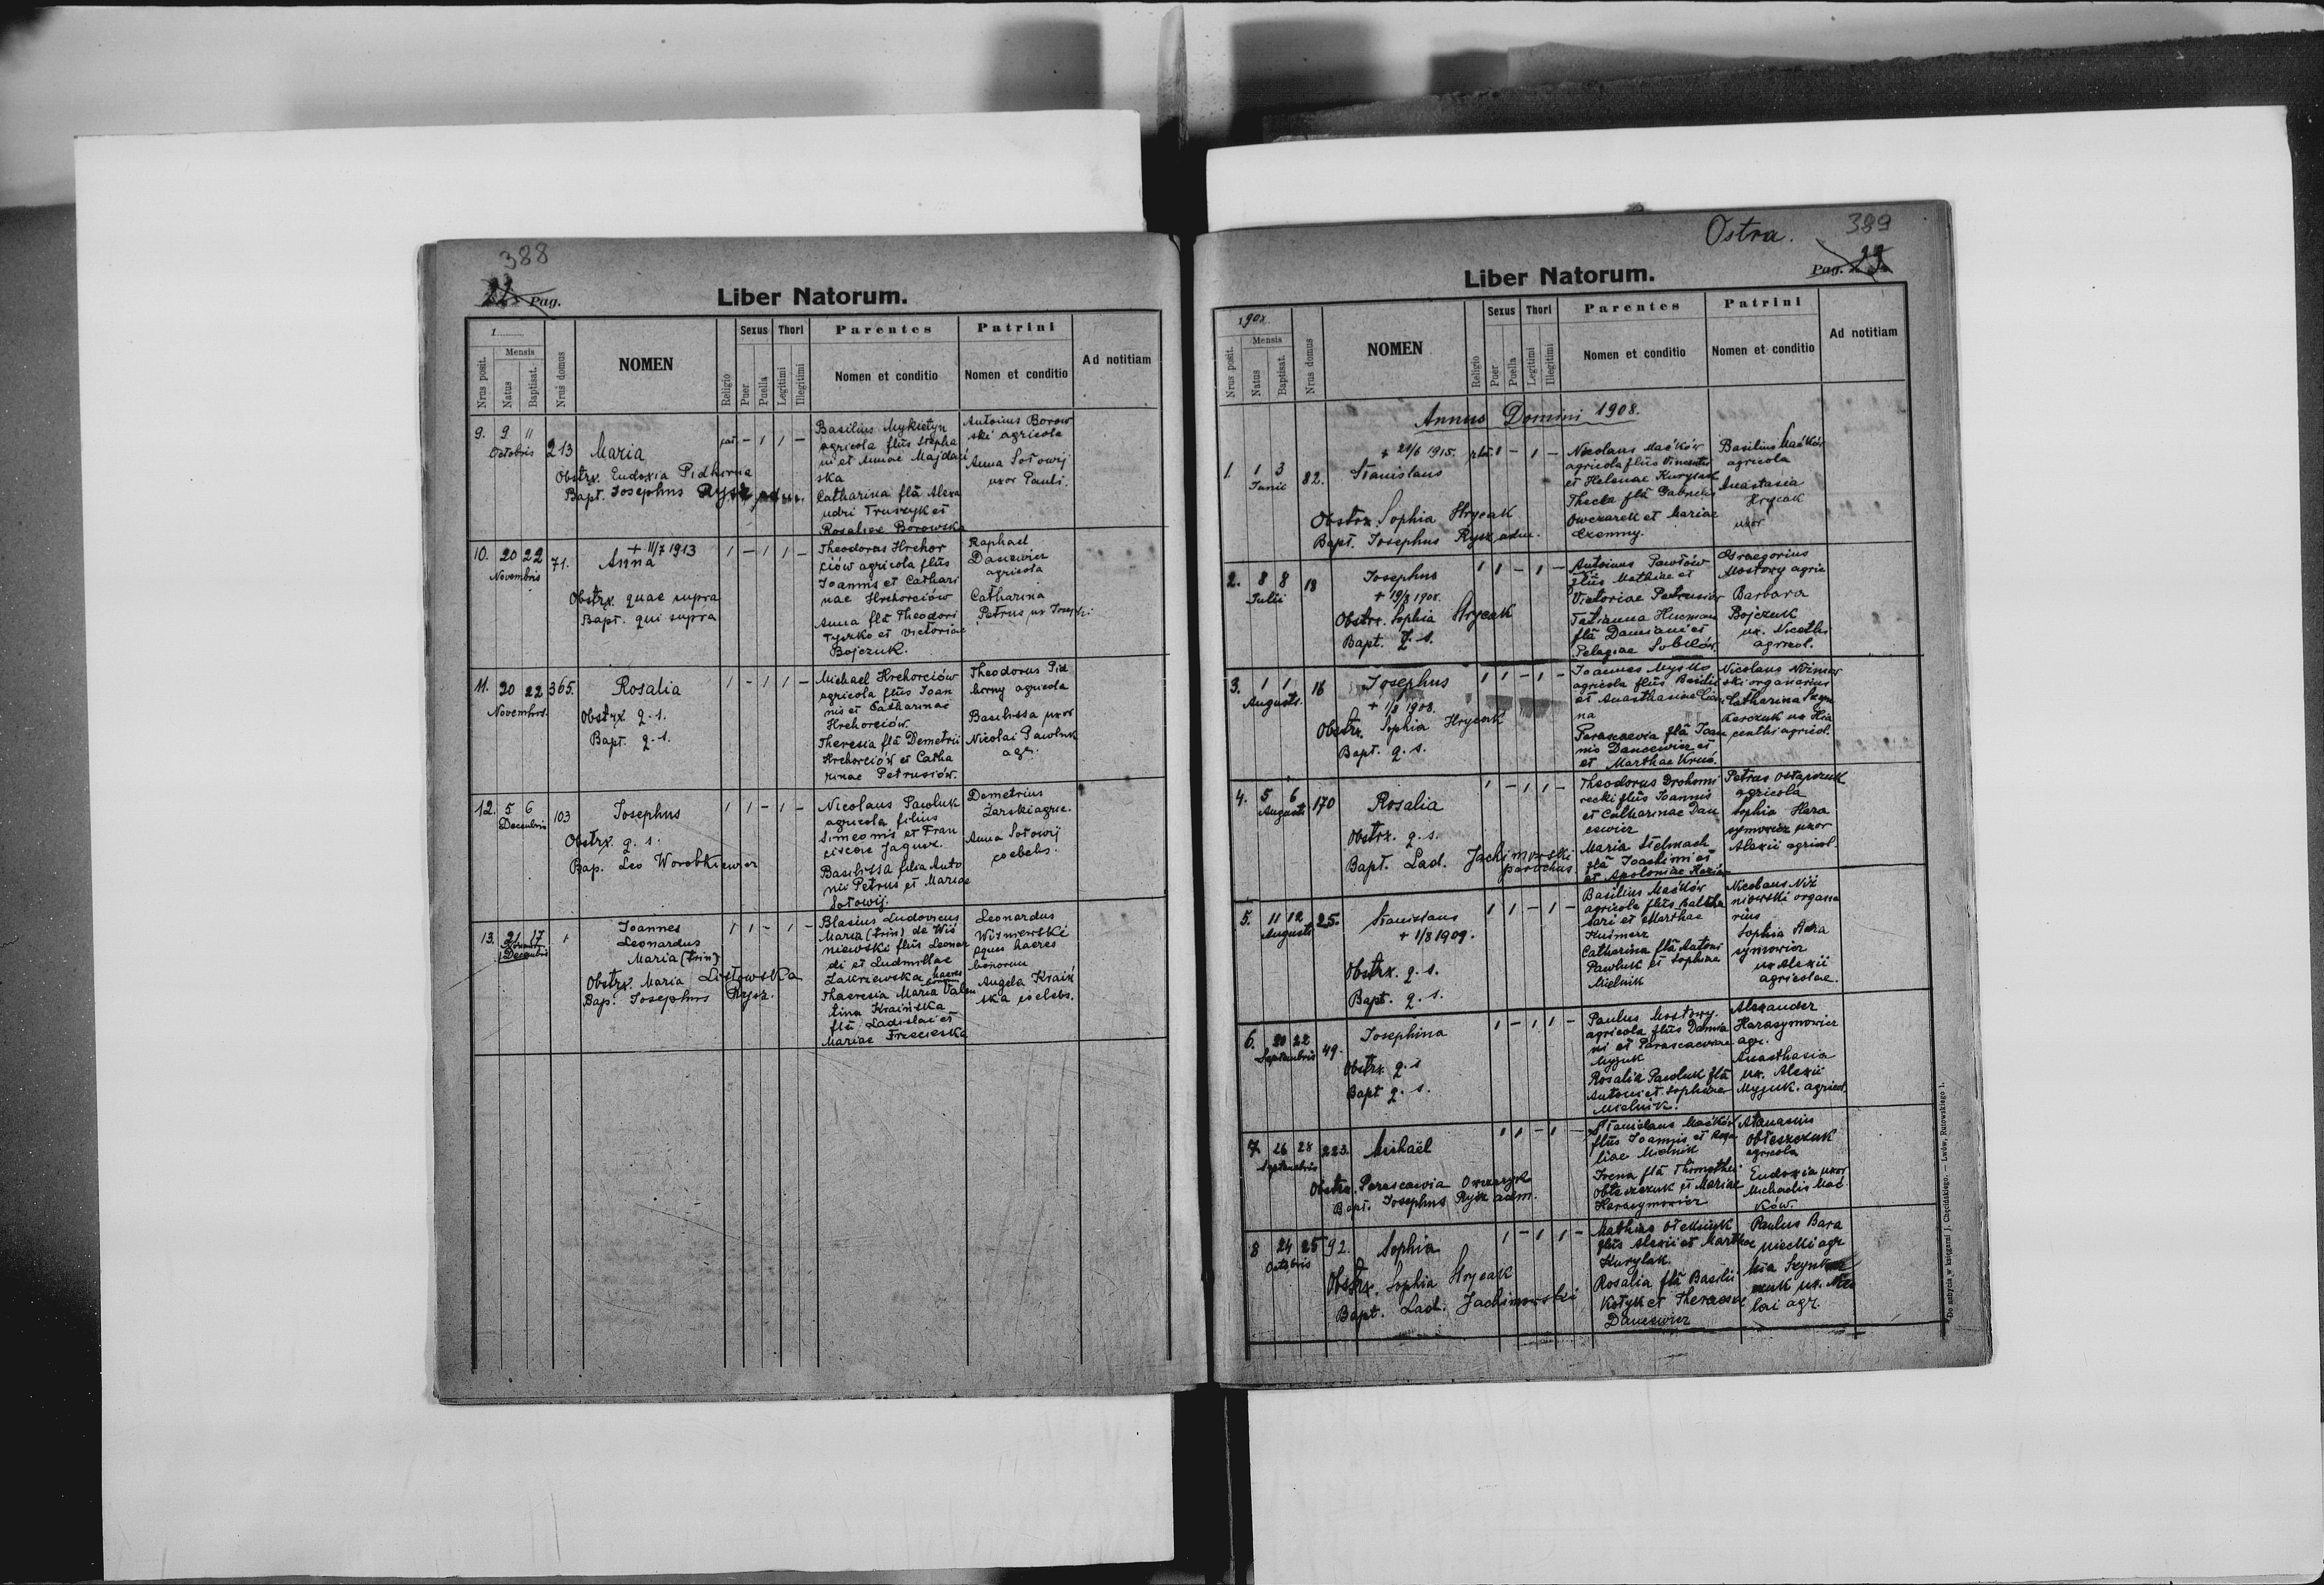 388
22 Pag.
Liber Natorum.
1
Nrus posit.
Mensis
Natus
Baptisat.
Nrus domus
NOMEN
Religio
Sexus
Puer
Puella
Thori
Legitimi
Illegitimi
Parentes
Nomen et conditio
Patrini
Nomen et conditio
Ad notitiam
9. 9 11
Octobris
213
Maria
Obstrx. Eudoxia Pidhirna
Bapt. Josephus Rysz, adm.
- 1 1 -
Basilius Mykietyn
agricola flius Stepha
ni et Annae Majdań
ska
Catharina fla Alexa
ndri Truszyk et
Rosaliae Borowska
Antonius Borow
ski agricola
Anna Sołowij
uxor Pauli.
10. 20 22
Novembris
71.
+ 11/7 1913
Anna
Obstrx. quae supra
Bapt. qui supra
1 - 1 1 -
Theodorus Hrehor
ciów agricola flius
Joannis et Cathari
nae Hrehorciów
Anna fla Theodori
Tyszko et Victoriae
Bojczuk.
Raphael
Dancewicz
agricola
Catharina
Petrus ux Josephi
11. 20 22
Novembris.
365.
Rosalia
Obstrx q. s.
Bapt. q. s.
1 - 1 1 -
Michael Hrehorciów
agricola flius Joan
nis et Catharinae
Hrehorciów.
Theresia fla Demetrii
Hrehorciów et Catha
rinae Petrusiów.
Theodorus Pid
hirny agricola
Basilissa uxor
Nicolai Pawluk
agr.
12. 5 6
Decembris
103
Josephus
Obstrx. q. s.
Bap. Leo Worobkiewicz
1 1 - 1 -
Nicolaus Pawluk
agricola filius
Simeonis et Fran
ciscae Jagusz.
Basilissa filia Anto
nii Petrus et Mariae
Sołowij.
Demetrius
Żarski agric.
Anna Sołowij
coelebs.
13. 21 17
Novembr
Decembris
1
Joannes
Leonardus
Maria (trin)
Obstrx. Maria Listowska
Bap. Josephus Rysz.
1 1 - 1 -
Blasius Ludovicus
Maria (trin) de Wiś
niewski flius Leonar
di et Ludmillae
Zakrzewska haeres
bonorum
Theresia Maria Valen
tina Kraińska
fla Ladislai et
Mariae Trzecieska
Leonardus
Wiśniewski
eques haeres
bonorum
Angela Kraiń
ska coelebs.
Ostra.
389
Pag. 23
Liber Natorum.
1908
Nrus posit.
Mensis
Natus
Baptisat.
Nrus domus
NOMEN
Religio
Sexus
Puer
Puella
Thori
Legitimi
Illegitimi
Parentes
Nomen et conditio
Patrini
Nomen et conditio
Ad notitiam
Annus Domini 1908.
1. 1 3
Junii
82.
+ 21/6 1915.
Stanislaus
Obstrx. Sophia Hrycak
Bapt. Josephus Rysz adm.
1 - 1 -
Nicolaus Maćków
agricola flius Vincentii
et Helenae Kurylak
Thecla fla Gabrielis
Owczarek et Mariae
Czemny.
Basilius Maćków
agricola
Anastasia
Hrycak
uxor
2. 8 8
Julii
18
Josephus
+ 19/8 1908.
Obstrx. Sophia Hrycak
Bapt. q. s.
1 1 - 1 -
Antonius Pawłów
flius Mathiae et
Victoriae Petrusiów
Tetianna Hucman
fla Damiani et
Pelagiae Sobków.
Graegorius
Mostowy agric
Barbara
Bojczuk
ux. Nicolai
agricol.
3. 1 1
Augusti.
16
Josephus
+ 1/8 1908.
Obstrx. Sophia Hrycak
Bapt. q. s.
1 1 - 1 -
Joannes Myśko
agricola flius Basilii
et Anasthasiae
na
Parascevia fla Joan
nis Dancewicz et
et Marthae Kruś.
Nicolaus Niżniow
ski organarius
Catharina
ux Hia
cynthi agricol.
4. 5 6
Augusti
170
Rosalia
Obstrx. q. s.
Bapt. Lad. Jachimowski
parochus
1 - 1 1 -
Theodorus Drohomi
recki flius Joannis
et Catharinae Dan
cewicz
Maria Stelmach
fla Joachimi et
et Apoloniae
Petrus Ostapczuk
agricola
Sophia Hara
symowicz uxor
Alexii agricol.
5. 11 12
Augusti
25.
Stanislaus
+ 1/8 1909.
Obstrx. q. s.
Bapt. q. s.
1 1 - 1 -
Basilius Maćków
agricola flius Baltha
sari et Marthae
Kuśnierz
Catharina fla Antoni
Pawluk et Sophiae
Mielnik
Nicolaus Niż
niowski organa
rius
Sophia Hara
symowicz
ux Alexii
agricolae.
6. 20 22
Septembris
49.
Josephina
Obstrx. q. s
Bapt q. s.
1 - 1 1 -
Paulus Mostowy.
agricola flius Damia
ni et Parasceviae
Myjuk
Rosalia Pawluk fla
Antoni et Sophiae
Mielnik.
Alexander
Harasymowicz
agr.
Anasthasia
ux. Alexii
Myjuk. agricol.
7 26 28
Septembris
223.
Michaël
Obstrx. Parascevia Owczaryk
Bapt. Josephus Rysz adm.
1 1 - 1 -
Stanislaus Maćków
flius Joannis et Rosa
liae Mielnik
Irena fla Thimothei
Obłeszczuk et Mariae
Harasymowicz
Atanasius
Obłeszczuk
agricola
Eudoxia uxor
Michaelis Mać
ków.
8 24 25
Octobris
92.
Sophia
Obstrx. Sophia Hrycak
Bapt. Lad. Jachimowski
1 - 1 1 -
Mathias Oleksiyk
flius Alexii et Marthae
Kurylak.
Rosalia fla Basilii
Kotyk et Theresiae
Dancewicz
Paulus Bara
niecki agr
lai agr.
Do nabycia w księgarni J. Chęcińskiego. — Lwów, Rutowskiego 1.